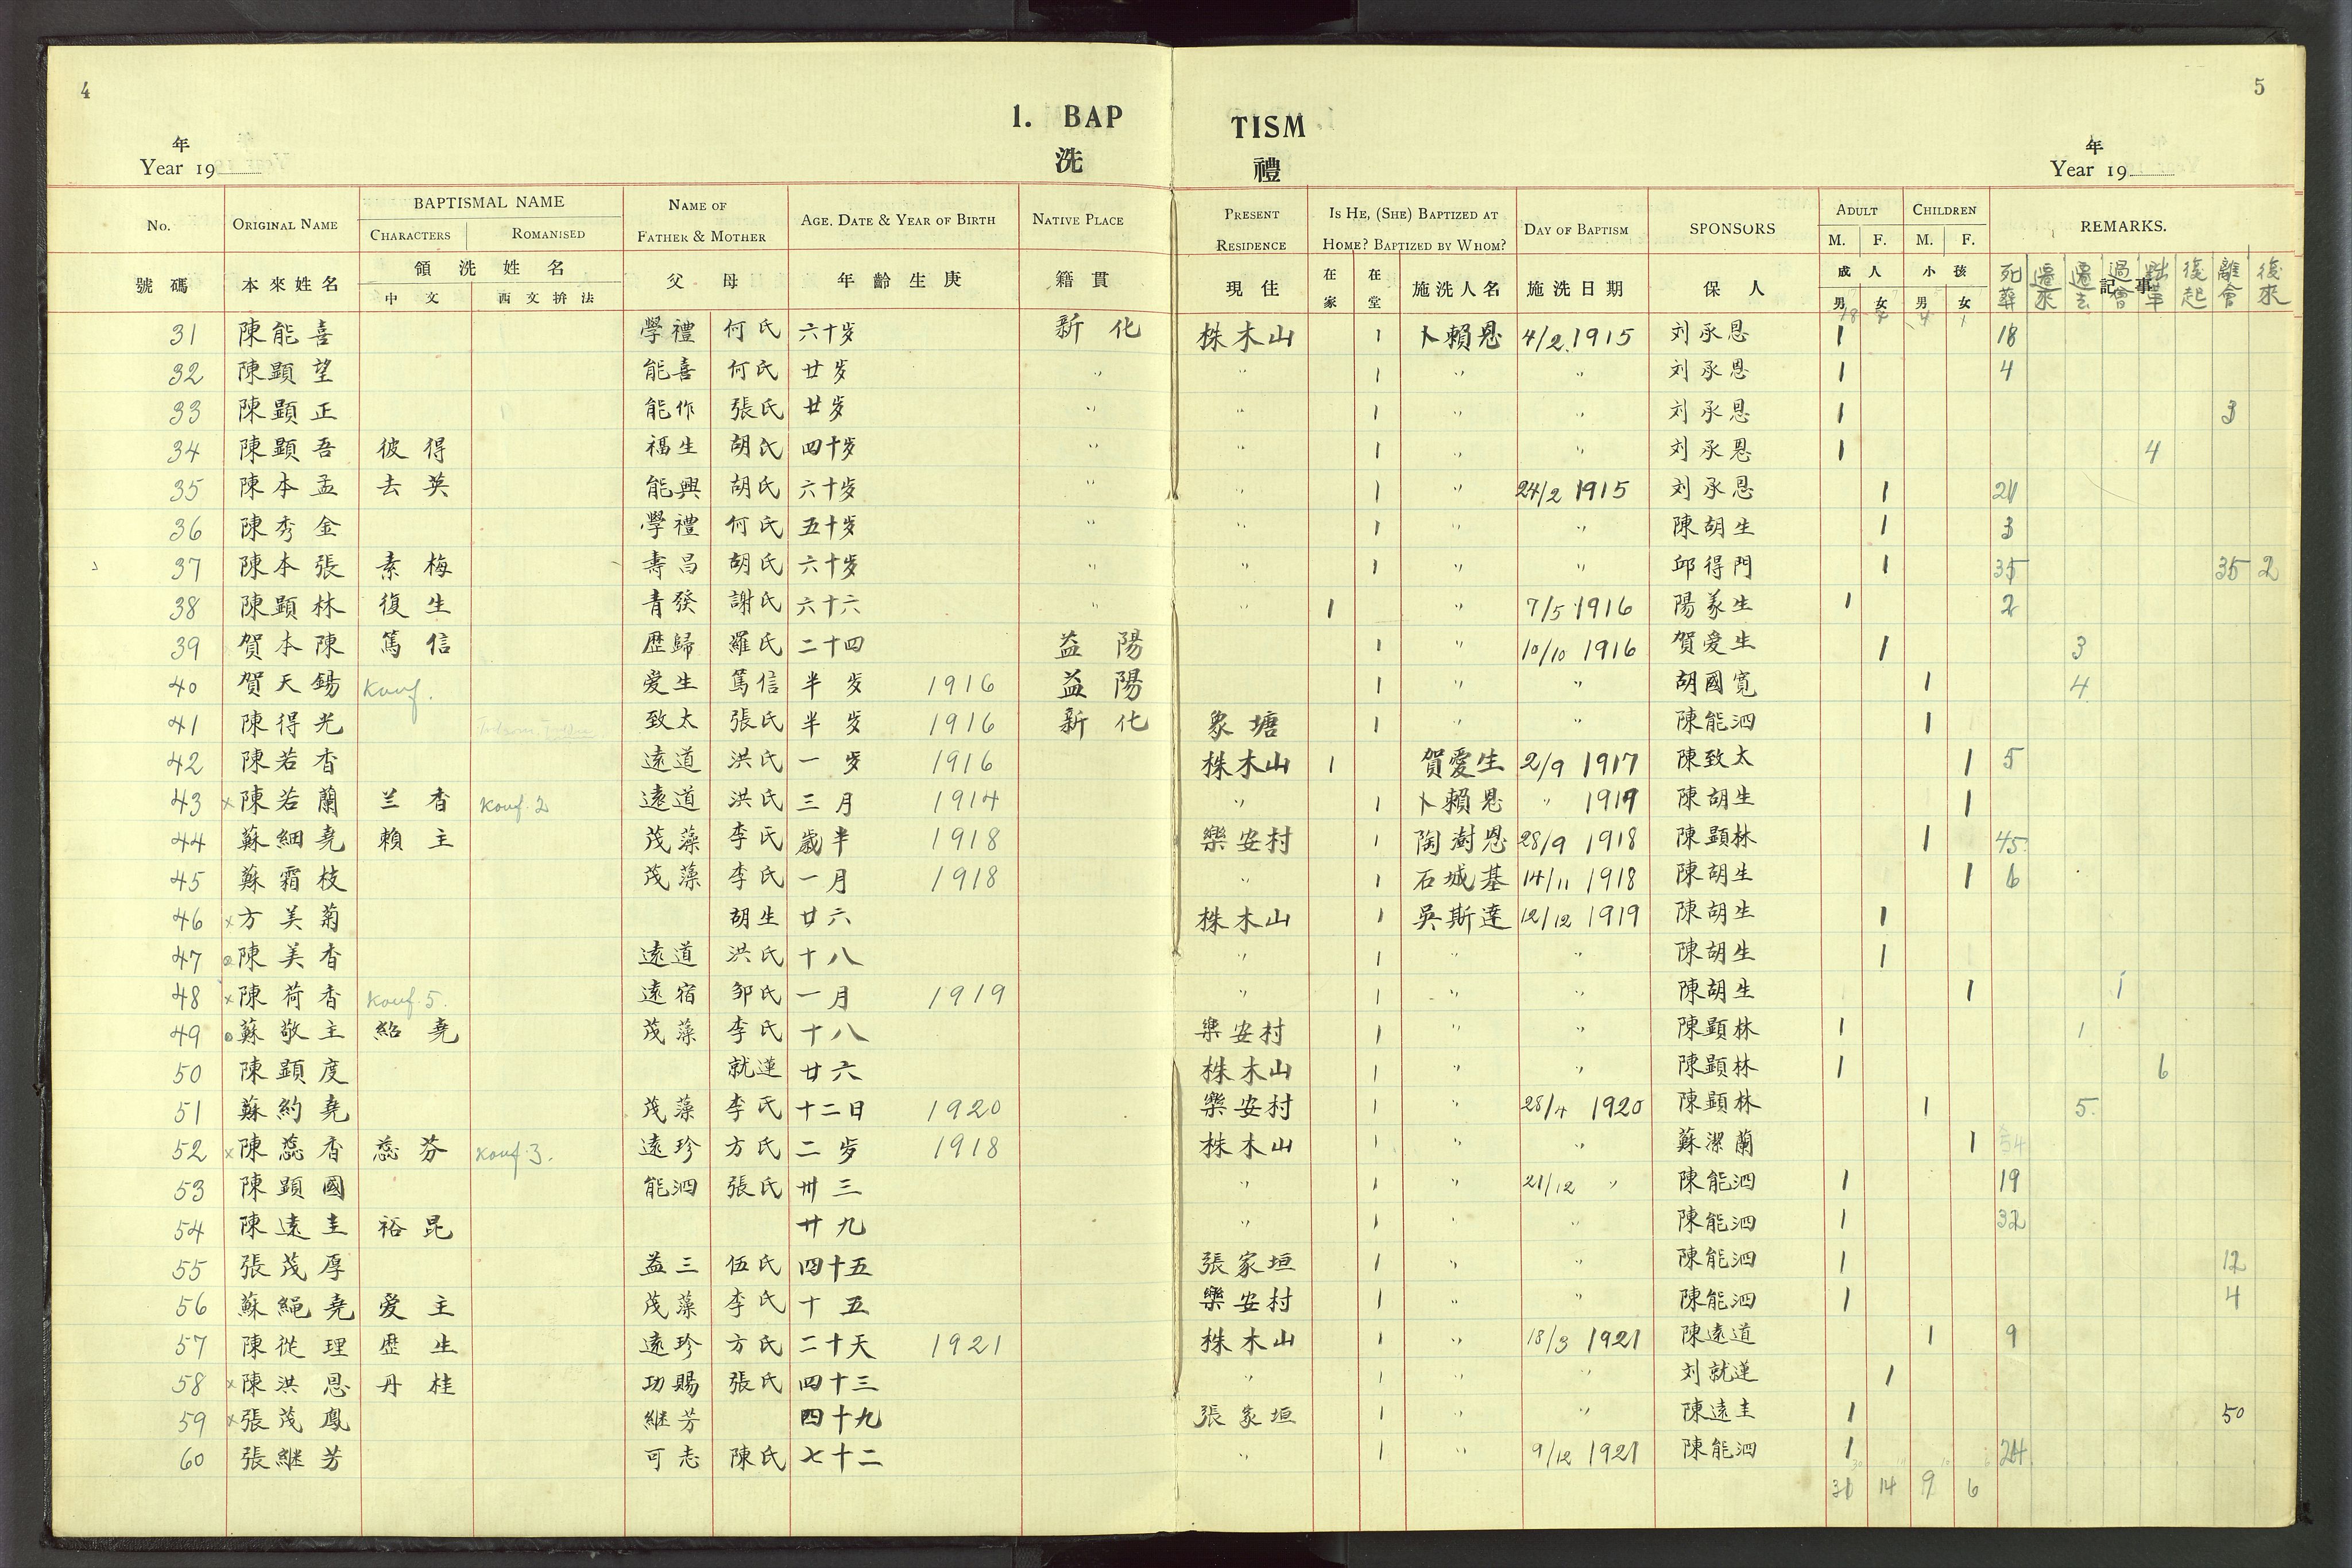 4
5
1. BAP TISM
洗 禮
年
Year 19
年
Year 19
No. ORIGINAL NAME BAPTISMAL NAME NAME OF FATHER & MOTHER AGE. DATE & YEAR OF BIRTH NATIVE PLACE PRESENT RESIDENCE IS HE, (SHE) BAPTIZED AT HOME? BAPTIZED BY WHOM? DAY OF BAPTISM SPONSORS ADULT CHILDREN REMARKS.
CHARACTERS ROMANISED M. F. M. F.
號碼 本來姓名 領洗姓名 父 母 年齡生庚 籍貫 現住 在家 在堂 施洗人名 施洗日期 保人 成人 小孩 記事
中文 西文拚法 男 女 男 女 死葬 遷來 遷去 過會 黜革 復起 離會 復來
18 4 4 1
31 陳能喜 學禮 何氏 六十岁 新化 株木山 1 卜賴恩 4/2 1915 刘承恩 1 18
32 陳顕望 能喜 何氏 廿岁 " " 1 " " 刘承恩 1 4
33 陳顕正 能作 張氏 廿岁 " " 1 " " 刘承恩 1 3
34 陳顕吾 彼得 福生 胡氏 四十岁 " " 1 " " 刘承恩 1 4
35 陳本孟 去英 能興 胡氏 六十岁 " " 1 " 24/2 1915 刘承恩 1 21
36 陳秀金 學禮 何氏 五十岁 " " 1 " " 陳胡生 1 3
37 陳本張 素梅 壽昌 胡氏 六十岁 " " 1 " " 邱得門 1 35 35 2
38 陳顕林 復生 青發 謝氏 六十六 " " 1 " 7/5 1916 陽義生 1 2
39 賀本陳 篤信 歷歸 羅氏 二十四 益陽 1 " 10/10 1916 賀爱生 1 3
40 賀天錫 Konf. 爱生 篤信 半岁 1916 益陽 1 " " 胡國寬 1 4
41 陳得光 致太 張氏 半岁 1916 新化 象塘 1 " " 陳能泗 1
42 陳若香 遠道 洪氏 一岁 1916 株木山 1 賀愛生 2/9 1917 陳致太 1 5
43 x 陳若蘭 兰香 Konf. 2 遠道 洪氏 三月 1914 " 1 卜賴恩 " 1917 陳胡生 1
44 蘇細堯 賴主 茂藻 李氏 歲半 1918 樂安村 1 陶澍恩 28/9 1918 陳顕林 1 45
45 蘇霜枝 茂藻 李氏 一月 1918 " 1 石城基 14/11 1918 陳胡生 1 6
46 x 方美菊 胡生 廿六 株木山 1 吳斯達 12/12 1919 陳胡生 1
47 陳美香 遠道 洪氏 十八 " 1 " " 陳胡生 1
48 x 陳荷香 Konf. 5. 遠宿 邹氏 一月 1919 " 1 " " 陳胡生 1 1
49 蘇敬主 紹堯 茂藻 李氏 十八 樂安村 1 " " 陳顕林 1 1
50 陳顕度 就蓮 廿六 株木山 1 " " 陳顕林 1 6
51 蘇約堯 茂藻 李氏 十二日 1920 樂安村 1 " 28/4 1920 陳顕林 1 5.
52 x 陳蕊香 蕊芬 Konf. 3. 遠珍 方氏 二岁 1918 株木山 1 " " 蘇潔蘭 1 54
53 陳顕國 能泗 張氏 卅三 " 1 " 21/12 " 陳能泗 1 19
54 陳遠圭 裕昆 廿九 " 1 " " 陳能泗 1 32
55 張茂厚 益三 伍氏 四十五 張家垣 1 " " 陳能泗 1 12
56 蘇繩堯 爱主 茂藻 李氏 十五 樂安村 1 " " 陳能泗 1 4
57 陳從理 歷生 遠珍 方氏 二十天 1921 株木山 1 " 18/3 1921 陳遠道 1 9
58 x 陳洪恩 丹桂 功賜 張氏 四十三 " 1 " " 刘就蓮 1
59 x 張茂鳳 継芳 四十九 張家垣 1 " " 陳遠圭 1 50
60 張継芳 可志 陳氏 七十二 " 1 " 9/12 1921 陳能泗 1 24
31 14 9 6